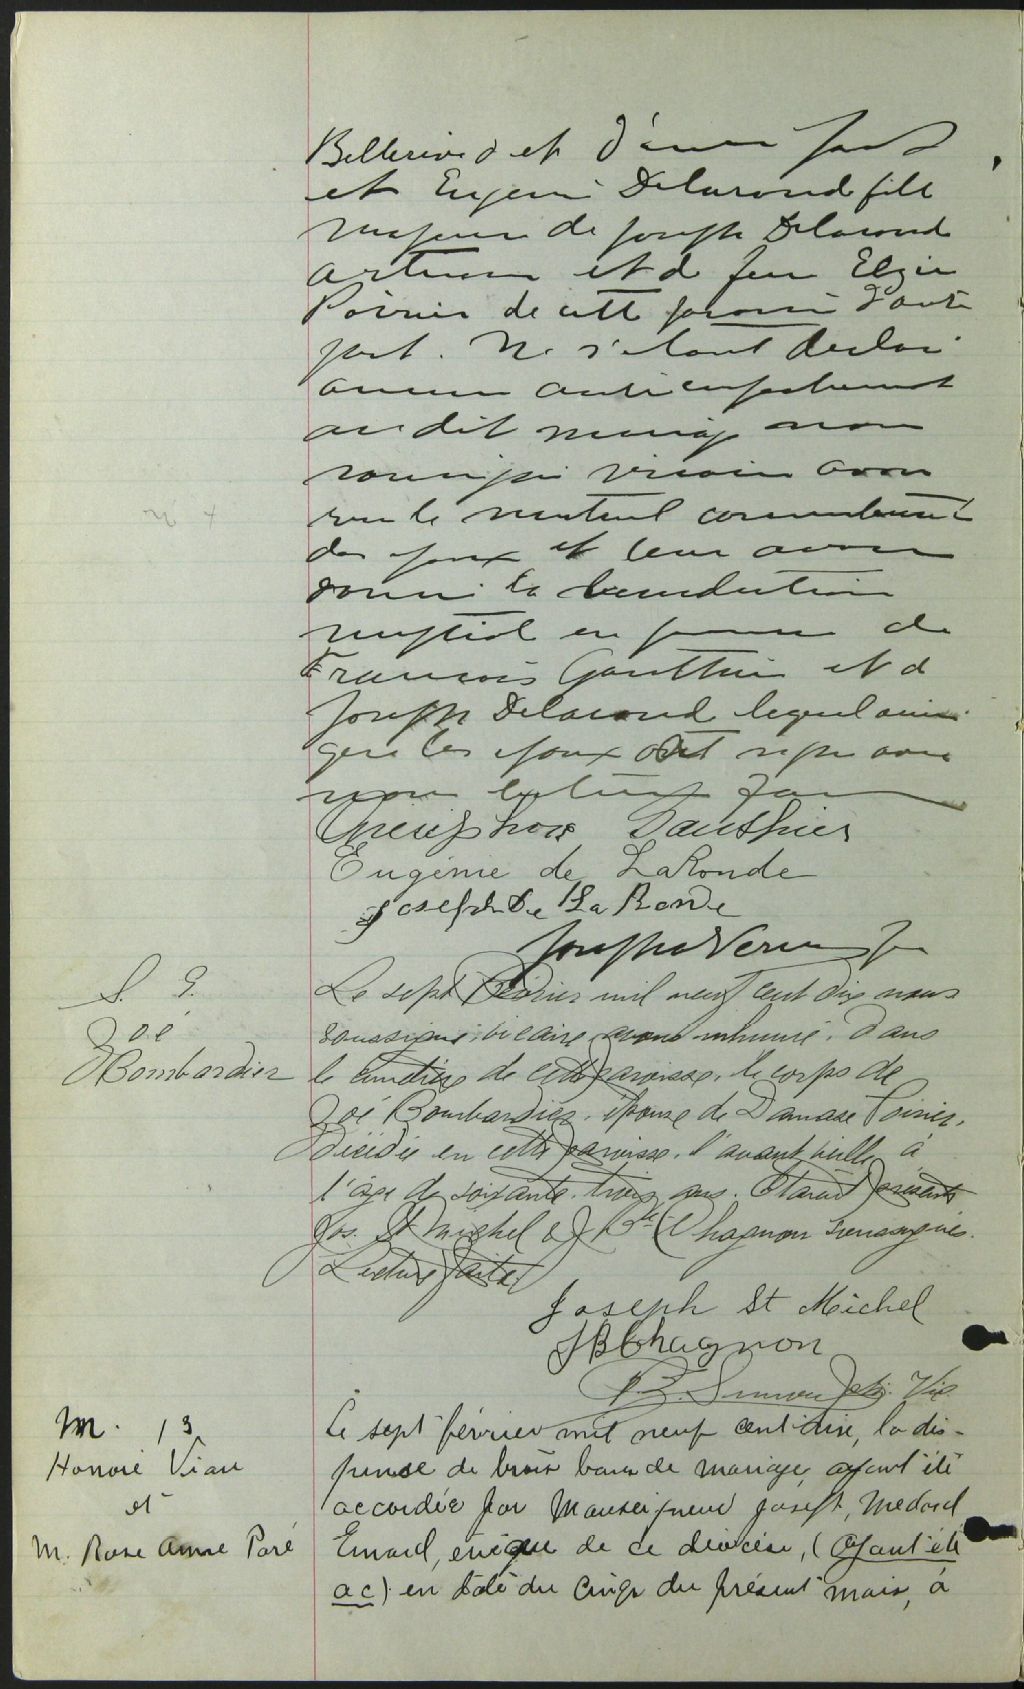 Bellerive et d'une part
et Eugénie Delaronde fille
majeure de Joseph Delaronde
et de feu
Poirier de cette paroisse d'autre
part. Ne s'étant
aucun
au dit mariage nous
soussigné vicaire avons
reçu le mutuel consentement
des époux et leur avons
donné la bénédiction
nuptiale en présence de
François Gauthier et de
Joseph Delaronde lequel ainsi
que les époux ont signé avec
nous lecture faite
Onésiphore Gauthier
Eugénie de LaRonde
Joseph De La Ronde
Joseph
S. 9.
Zoé
Bombardier
Le sept Février mil neuf cent dix nous
soussigné vicaire avons inhumé dans
le cimetière de cette paroisse, le corps de
Zoé Bombardier, épouse de Damase Poirier,
décédée en cette paroisse, l'avant veille à
l'âge de soixante trois ans. Etaient présents
Jos. St Michel & J Bte Chagnon soussignés.
Lecture faite
Joseph St Michel
JBChagnon
Ptre. Vic.
M. 13
Honoré Viau
et
M. Rose Anna Paré
Le sept février mil neuf cent dix, la dis-
pense de trois bans de mariage, ayant été
accordée par Monseigneur Joseph, Medard
Emard, évêque de ce diocèse, (ayant été
ac) en date du cinq du présent mois, à